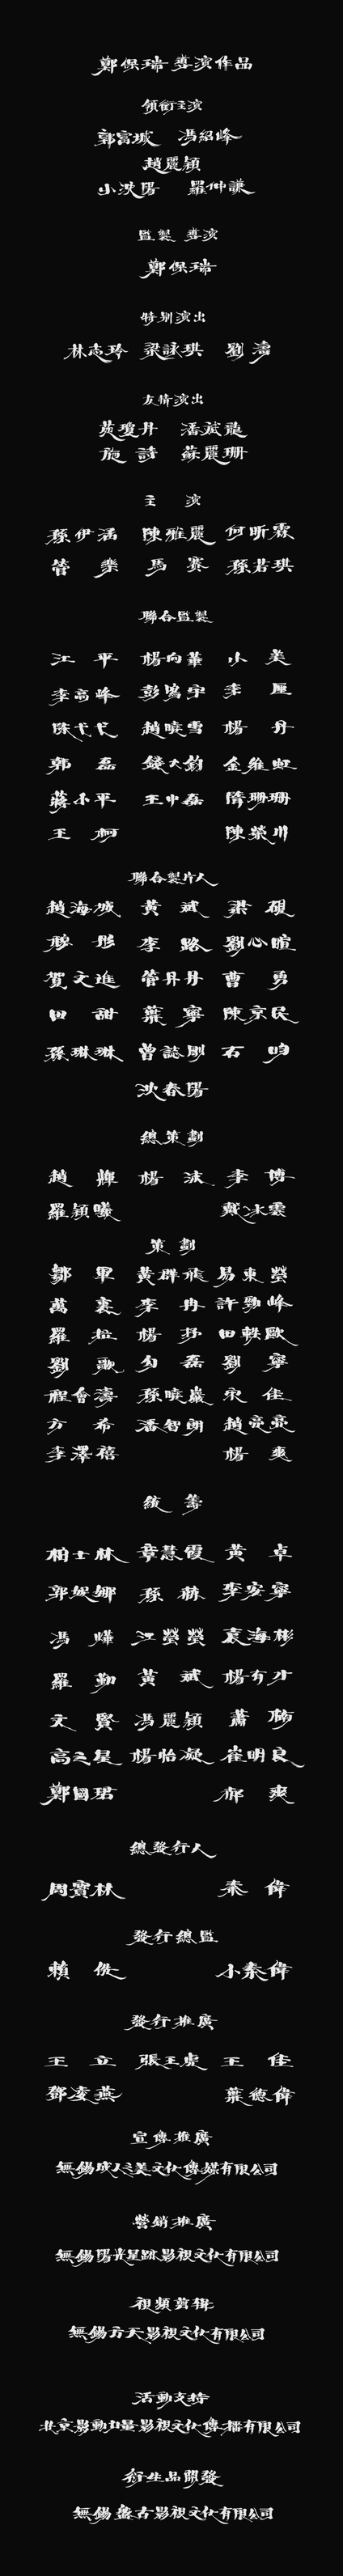 鄭保瑞 導演作品
領銜主演
郭富城 馮紹峰
趙麗穎
小沈陽 羅仲謙
監製 導演
鄭保瑞
特別演出
林志玲 梁詠琪 劉濤
友情演出
苑瓊丹 潘斌龍
施詩 蘇麗珊
主演
孫伊涵 陳雅麗 何昕霖
管樂 馬賽 孫若琪
聯合監製
江平 楊向華 小美
李高峰 彭 宇 李厘
陳弋弋 趙曉雪 楊丹
韓磊 錢大鈞 金維虹
蔣小平 王中磊 隋珊珊
王柯 陳榮川
聯合製片人
趙海城 黃斌 梁硯
穆彤 李路 劉心暄
賀文進 管丹丹 曹勇
田甜 葉寧 陳京民
孫琳琳 曾誌剛 石昀
沈春陽
總策劃
趙輝 楊波 李博
羅穎曦 戴冰雲
策劃
鄒軍 黃群飛 易東瑩
萬裏 李冉 許勁峰
羅拉 楊抒 田軼歐
劉 勾磊 劉寧
程會濤 孫曉巖 宋佳
方希 潘智朗 趙亮亮
李澤蓓 楊爽
統籌
柏士林 章慧霞 黃卓
郭妮娜 孫赫 李安寧
馮 江瑩瑩 袁海彬
羅勤 黃斌 楊有才
文賢 馮麗穎 蕭
高之星 楊怡凝 崔明良
鄭國珺 郝爽
總發行人
周寶林 秦偉
發行總監
賴 小秦偉
發行推廣
王立 張王虎 王佳
鄧凌燕 葉德偉
宣傳推廣
無錫成人之美文化傳媒有限公司
營銷推廣
無錫陽光星跡影視文化有限公司
視頻剪輯
無錫方天影視文化有限公司
活動支持
北京影動力量影視文化傳播有限公司
衍生品開發
無錫盤古影視文化有限公司